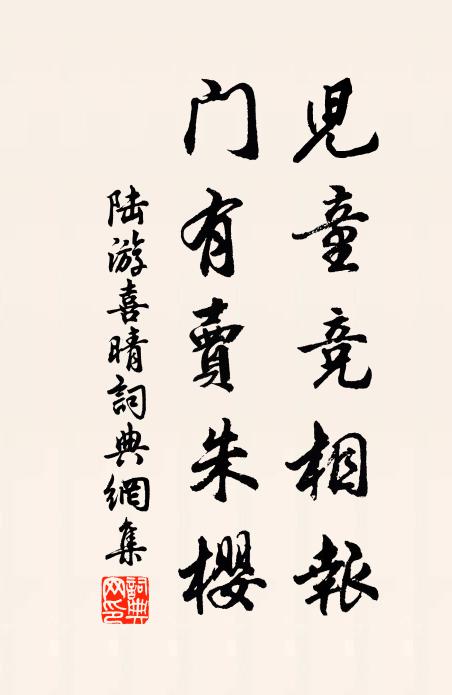 兒童竞相報
門有賣朱櫻
陆游喜晴詞典網集
詞典网印